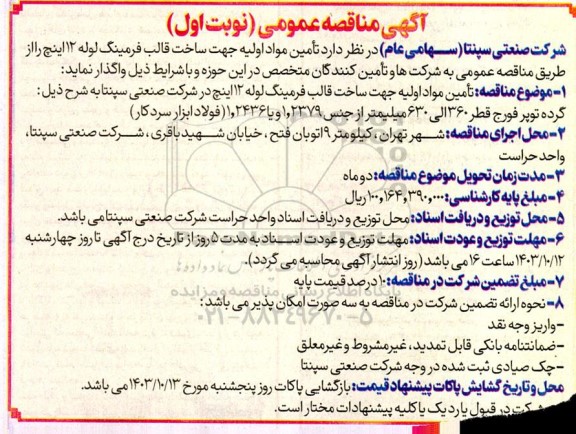 آگهی مناقصه عمومی (نوبت اول)
شرکت صنعتی سپنتا (سهامی عام) در نظر دارد تأمین مواد اولیه جهت ساخت قالب فرمینگ لوله ۱۲ اینچ را از
طریق مناقصه عمومی به شرکت ها و تأمین کنندگان متخصص در این حوزه و با شرایط ذیل واگذار نماید:
۱- موضوع مناقصه: تأمین مواد اولیه جهت ساخت قالب فرمینگ لوله ۱۲ اینچ در شرکت صنعتی سپنتا به شرح ذیل:
گرده توپر فورج قطر ۳۶۰ الی ۶۳۰ میلیمتر از جنس ۱,۲۳۷۹ و یا ۱,۲۴۳۶ (فولاد ابزار سردکار)
۲- محل اجرای مناقصه: شهر تهران، کیلومتر ۹ اتوبان فتح، خیابان شهید باقری، شرکت صنعتی سپنتا،
واحد حراست
۳- مدت زمان تحویل موضوع مناقصه: دو ماه
۴- مبلغ پایه کارشناسی: ۱۰۰,۱۶۴,۳۹۰,۰۰۰ ریال
۵- محل توزیع و دریافت اسناد: محل توزیع و دریافت اسناد واحد حراست شرکت صنعتی سپنتا می باشد.
۶- مهلت توزیع و عودت اسناد: مهلت توزیع و عودت اسناد به مدت ۵ روز از تاریخ درج آگهی تا روز چهارشنبه
۱۴۰۳/۱۰/۱۲ ساعت ۱۶ می باشد (روز انتشار آگهی محاسبه می گردد).
۷- مبلغ تضمین شرکت در مناقصه: ۱۰ درصد قیمت پایه
۸- نحوه ارائه تضمین شرکت در مناقصه به سه صورت امکان پذیر می باشد:
- واریز وجه نقد
- ضمانتنامه بانکی قابل تمدید، غیرمشروط و غیرمعلق
- چک صیادی ثبت شده در وجه شرکت صنعتی سپنتا
محل و تاریخ گشایش پاکات پیشنهاد قیمت: بازگشایی پاکات روز پنجشنبه مورخ ۱۴۰۳/۱۰/۱۳ می باشد.
شرکت در قبول یا رد یک یا کلیه پیشنهادات مختار است.
پایگاه اطلاع رسانی مناقصه و مزایده
۰۲۱-۸۸۳۴۹۶۷۰-۵